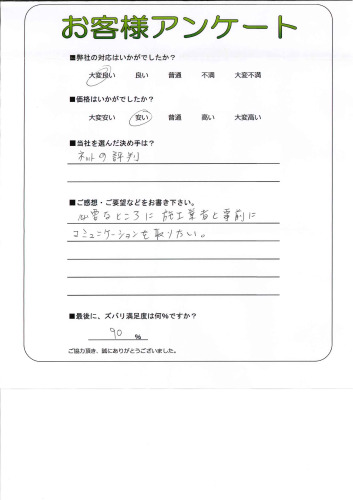 お客様アンケート
■弊社の対応はいかがでしたか？
大変良い 良い 普通 不満 大変不満
■価格はいかがでしたか？
大変安い 安い 普通 高い 大変高い
■当社を選んだ決め手は？
ネットの評判
■ご感想・ご要望などをお書き下さい。
必要なところに施工業者と事前に
コミュニケーションを取りたい。
■最後に、ズバリ満足度は何%ですか？
90 %
ご協力頂き、誠にありがとうございました。